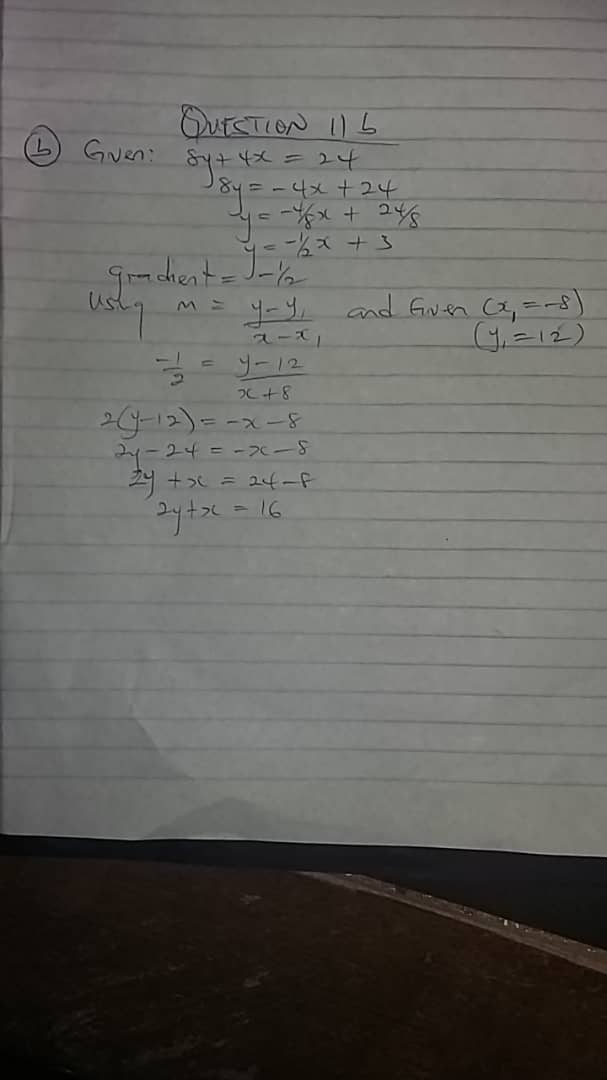 QUESTION 11 b
(b) Given: 8y + 4x = 24
8y = -4x + 24
y = -4/8x + 24/8
y = -1/2x + 3
gradient = -1/2
using m = (y - y₁)/(x - x₁) and Given (x₁ = -8)
(y₁ = 12)
-1/2 = (y - 12)/(x + 8)
2(y - 12) = -x - 8
2y - 24 = -x - 8
2y + x = 24 - 8
2y + x = 16